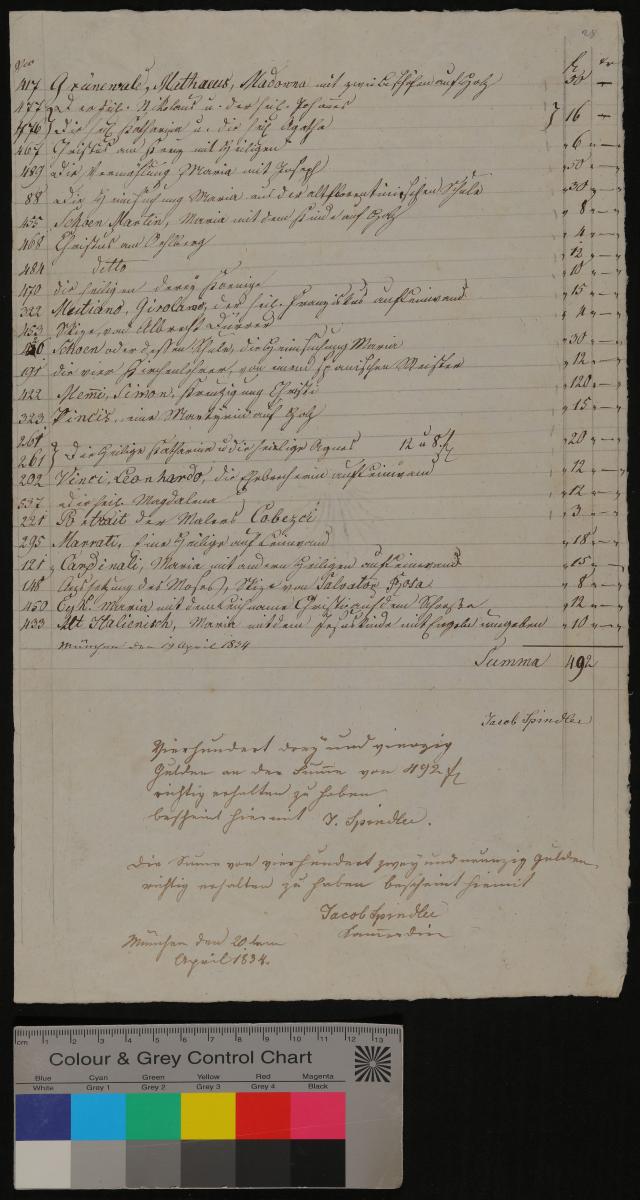 28
Nro fl xr
417 Grünewald, Mathaeus, Madonna mit zwei Bischöfen auf Holz 50 —
477 Der heil. Nikolaus u. der heil. Johannes } 16 —
476 } Die heil. Katharina u. die heil. Agatha
467 Christus am Kreuz mit Heiligen " 6 " —
489 Die Vermählung Maria mit Joseph " 50 " —
88 Die Heimsuchung Maria aus der altflorentinischen Schule " 30 " —
455 Schoen Martin, Maria mit dem Kinde auf Holz " 8 " —
468 Christus am Oehlberg " 4 " —
484 ditto " 12 " —
470 die heiligen drey Koenige " 10 " —
322 Muttiano, Girolamo, der heil. Franziskus auf Leinwand " 15 " —
453 Skize, von Albrecht Dürrer " 4 " —
Schoen oder dessen Schule, die Heimsuchung Maria " 30 " —
191 die vier Kirchenlehrer, von einem spanischen Meister " 12 " —
422 Memi, Simon, Kreuzigung Christi " 120 " —
323 eine Martyrin auf Holz " 15 " —
261
261 } Die heilige Katharina u die heilige Agnes 12 u 8 fl " 20 " —
202 Vinci, Leonhardo, die Ehebrecherin auf Leinwand " 12 " —
537 Die heil. Magdalena " 12 " —
221 Portrait der Malers " 3 " —
295 Marrati, Eine Heilige auf Leinwand " 18 " —
121 Cardinali, Maria mit andern Heiligen auf Leinwand " 15 " —
148 Aussetzung des Moses, Skize von Salvator Rosa " 8 " —
450 Eyk. Maria mit dem Leichname Christi auf dem Schooße " 12 " —
433 Alt Italienisch, Maria mit dem Jesuskinde mit Engeln umgeben " 10 " —
München den April 1834
Summa 492
Jacob Spindler
Vierhundert drey und vierzig
Gulden an der Summe von 492 fl
richtig erhalten zu haben
bescheint hiermit J. Spindler.
Die Summe von vierhundert zwey und neunzig Gulden
richtig erhalten zu haben bescheint hiemit
Jacob Spindler
München den 20ten
April 1834.
cm 1 2 3 4 5 6 7 8 9 10 11 12 13
Colour & Grey Control Chart
Blue Cyan Green Yellow Red Magenta
White Grey 1 Grey 2 Grey 3 Grey 4 Black